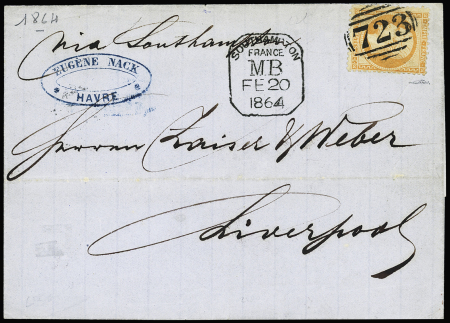 1864
via Southampton
723
SOUTHAMPTON
FRANCE
MB
FE 20
1864
EUGÈNE NACK
* HAVRE *
Herren Kaiser & Weber
Liverpool